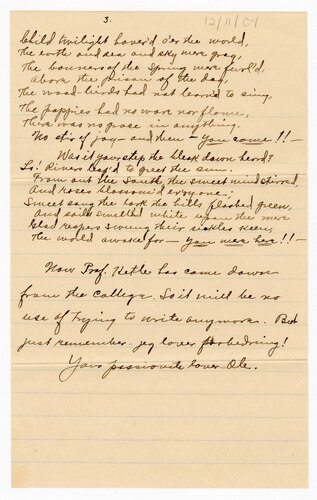 3.
12/11/09
Child twilight hover'd o'er the world,
The earth and sea and sky were gray,
The banners of the Spring were furl'd,
Above the prison of the day,
The wood-birds had not learned to sing,
The poppies had no work nor flame,
There was no grace in anything,
No stir of joy - and then - you came!! -
Was it your step the bleak dawn heard?
Lo! Rivers leap'd to greet the sun.
From out the South, the sweet wind stirred,
And roses blossom'd everyone.
Sweet sang the lark the hills flashed green,
And sails smelled white upon the mere
Glad reapers swung their sickles keen,
The world awoke for - you were here!! -
Now Prof. Kettle has come down
from the College. So it will be no
use of trying to write anymore. But
just remember - jeg lover forbedring!
Your passionate lover Ole.